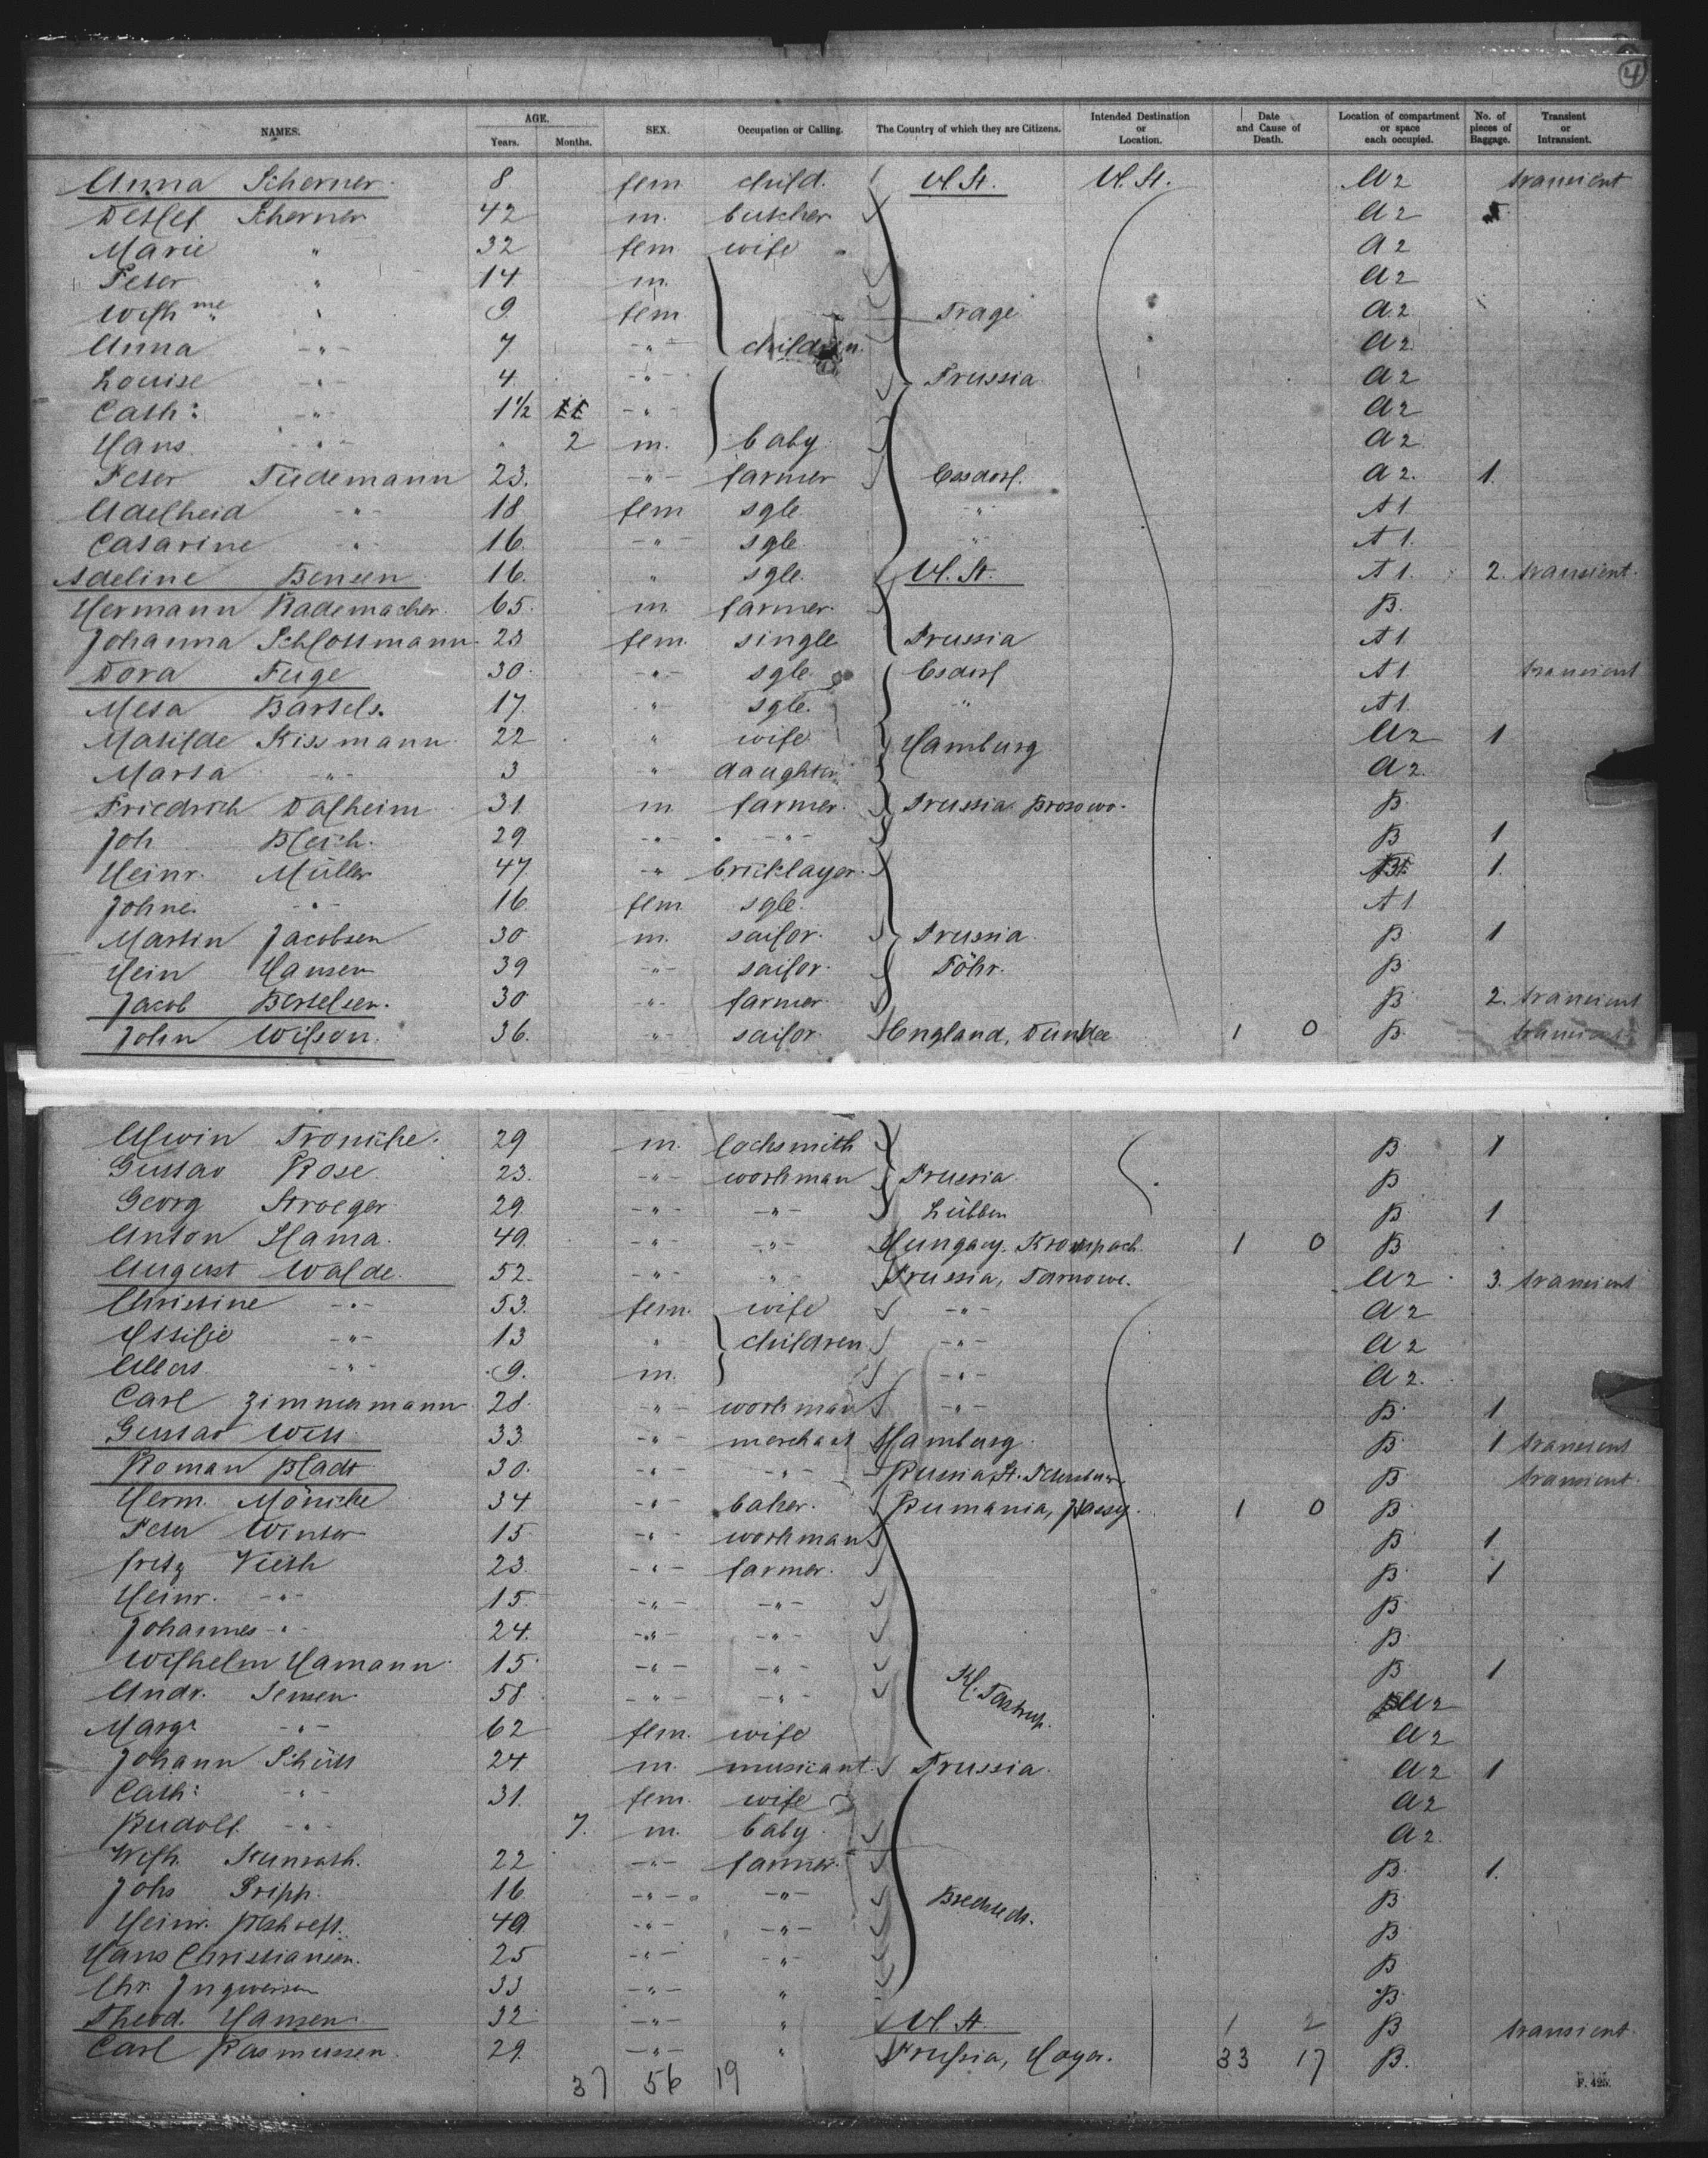 4
NAMES. AGE. Years. Months. SEX. Occupation or Calling. The Country of which they are Citizens. Intended Destination or Location. Date and Cause of Death. Location of compartment or space each occupied. No. of pieces of Baggage. Transient or Intransient.
Anna Scherner 8 fem child. U. St. U. St. A 2 transient
Detlef Scherner 42 m. butcher A 2 5
Marie " 32 fem wife A 2
Peter " 14 m. A 2
Wilh me " 9 fem Prage A 2
Anna -"- 7 -"- children. A 2
Louise -"- 4 -"- Prussia A 2
Cath: -"- 1 1/2 -"- A 2
Hans -"- 2 m. baby A 2
Peter Tiedemann 23. -"- farmer A 2. 1.
Adelheid -"- 18 fem sgle -"- A 1
Catarine " 16. -"- sgle " A 1.
Adeline Bensen 16. " sgle. U. St. A 1. 2. transient.
Hermann Rademacher. 65. m farmer. B.
Johanna Schlottmann 23 fem. single Prussia A 1
Dora Fuge 30. -"- sgle. A 1 transient
Meta Bartels. 17. " sgle. -"- A 1.
Matilde Kissmann 22 " wife Hamburg A 2 1
Marta -"- 3 " daughter A 2.
Friedrich Dalheim 31 m farmer. Prussia Brosowo. B
Joh Bleich. 29 -"- -"- B 1
Heinr. Müller 47 -"- bricklayer. 1.
Johne. -"- 16 fem sgle. A 1
Martin Jacobsen 30 m. sailor. Prussia B 1
Hein Hansen 39 -"- sailor. Föhr. B
Jacob Bertelsen. 30 -"- farmer. B 2. transient
John Wilson. 36. " sailor. England, Dundee 1 0 B. transient
Alwin Tronicke. 29 m. locksmith B 1
Gustav Rose 23. -"- workman Prussia B
Georg Stroeger 29 -"- -"- Lübben B 1
Anton Hama. 49. -"- -"- Hungary. Krompach. 1 0 B
August Walde. 52. -"- " Prussia, Tarnowe. A 2 3. transient
Christine -"- 53. fem. wife -"- A 2
Ottilie -"- 13 " children -"- A 2
Albert -"- 9. m. -"- A 2.
Carl Zimmermann 28. -"- workman -"- B 1
Gustav Witt 33 -"- merchant Hamburg B 1 transient
Roman Bladt 30. -"- -"- Russia St. Petersburg B transient.
Herm. Mönicke 34 -"- baker. Rumania, Jassy. 1 0 B
Peter Winter 15 -"- workman B 1
Fritz Vieth 23 -"- farmer. B 1
Heinr. -"- 15 -"- -"- B
Johannes -"- 24. -"- -"- B
Wilhelm Hamann 15 -"- -"- Kl. Tastrup. B 1
Andr. Jensen 58 -"- -"- A 2
Margr -"- 62 fem. wife A 2
Johann Schütt 24 m. musicant. Prussia. A 2 1
Cath: -"- 31. fem. wife A 2
Rudolf -"- 7. m. baby A 2
Wilh. 22 -"- farmer. B 1.
Johs Pripp. 16 -"- -"- B
Heinr. 49 -"- -"- B
Hans Christiansen. 25 -"- -"- B
Chr. Ingwersen 33 -"- " B
Theod. Hansen. 32 -"- " U. St. 1 2 B transient.
Carl Rasmussen. 29. -"- " Prussia, Hoyer. 33 17 B.
37 56 19
F. 425.